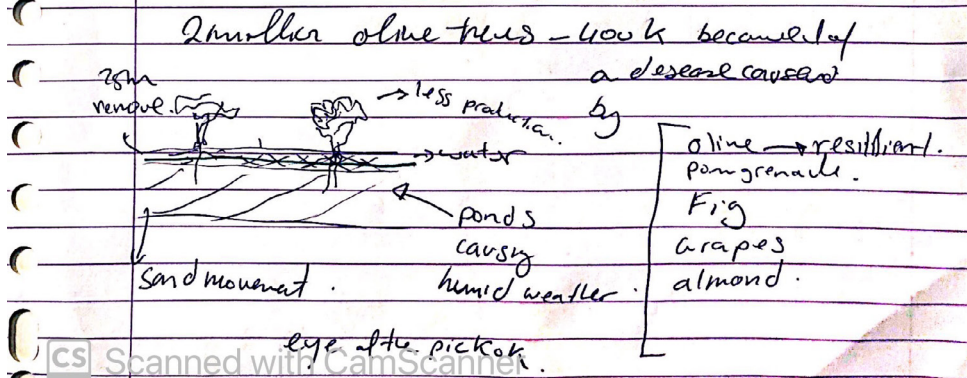 2million olive trees - 400k because of
a desease caused
by
25m
remove.
→ less production.
→ water
ponds
causing
humid weather.
sand movement.
olive → resillient.
pomgrenade.
Fig
Grapes
almond.
eye of the
CS Scanned with CamScanner